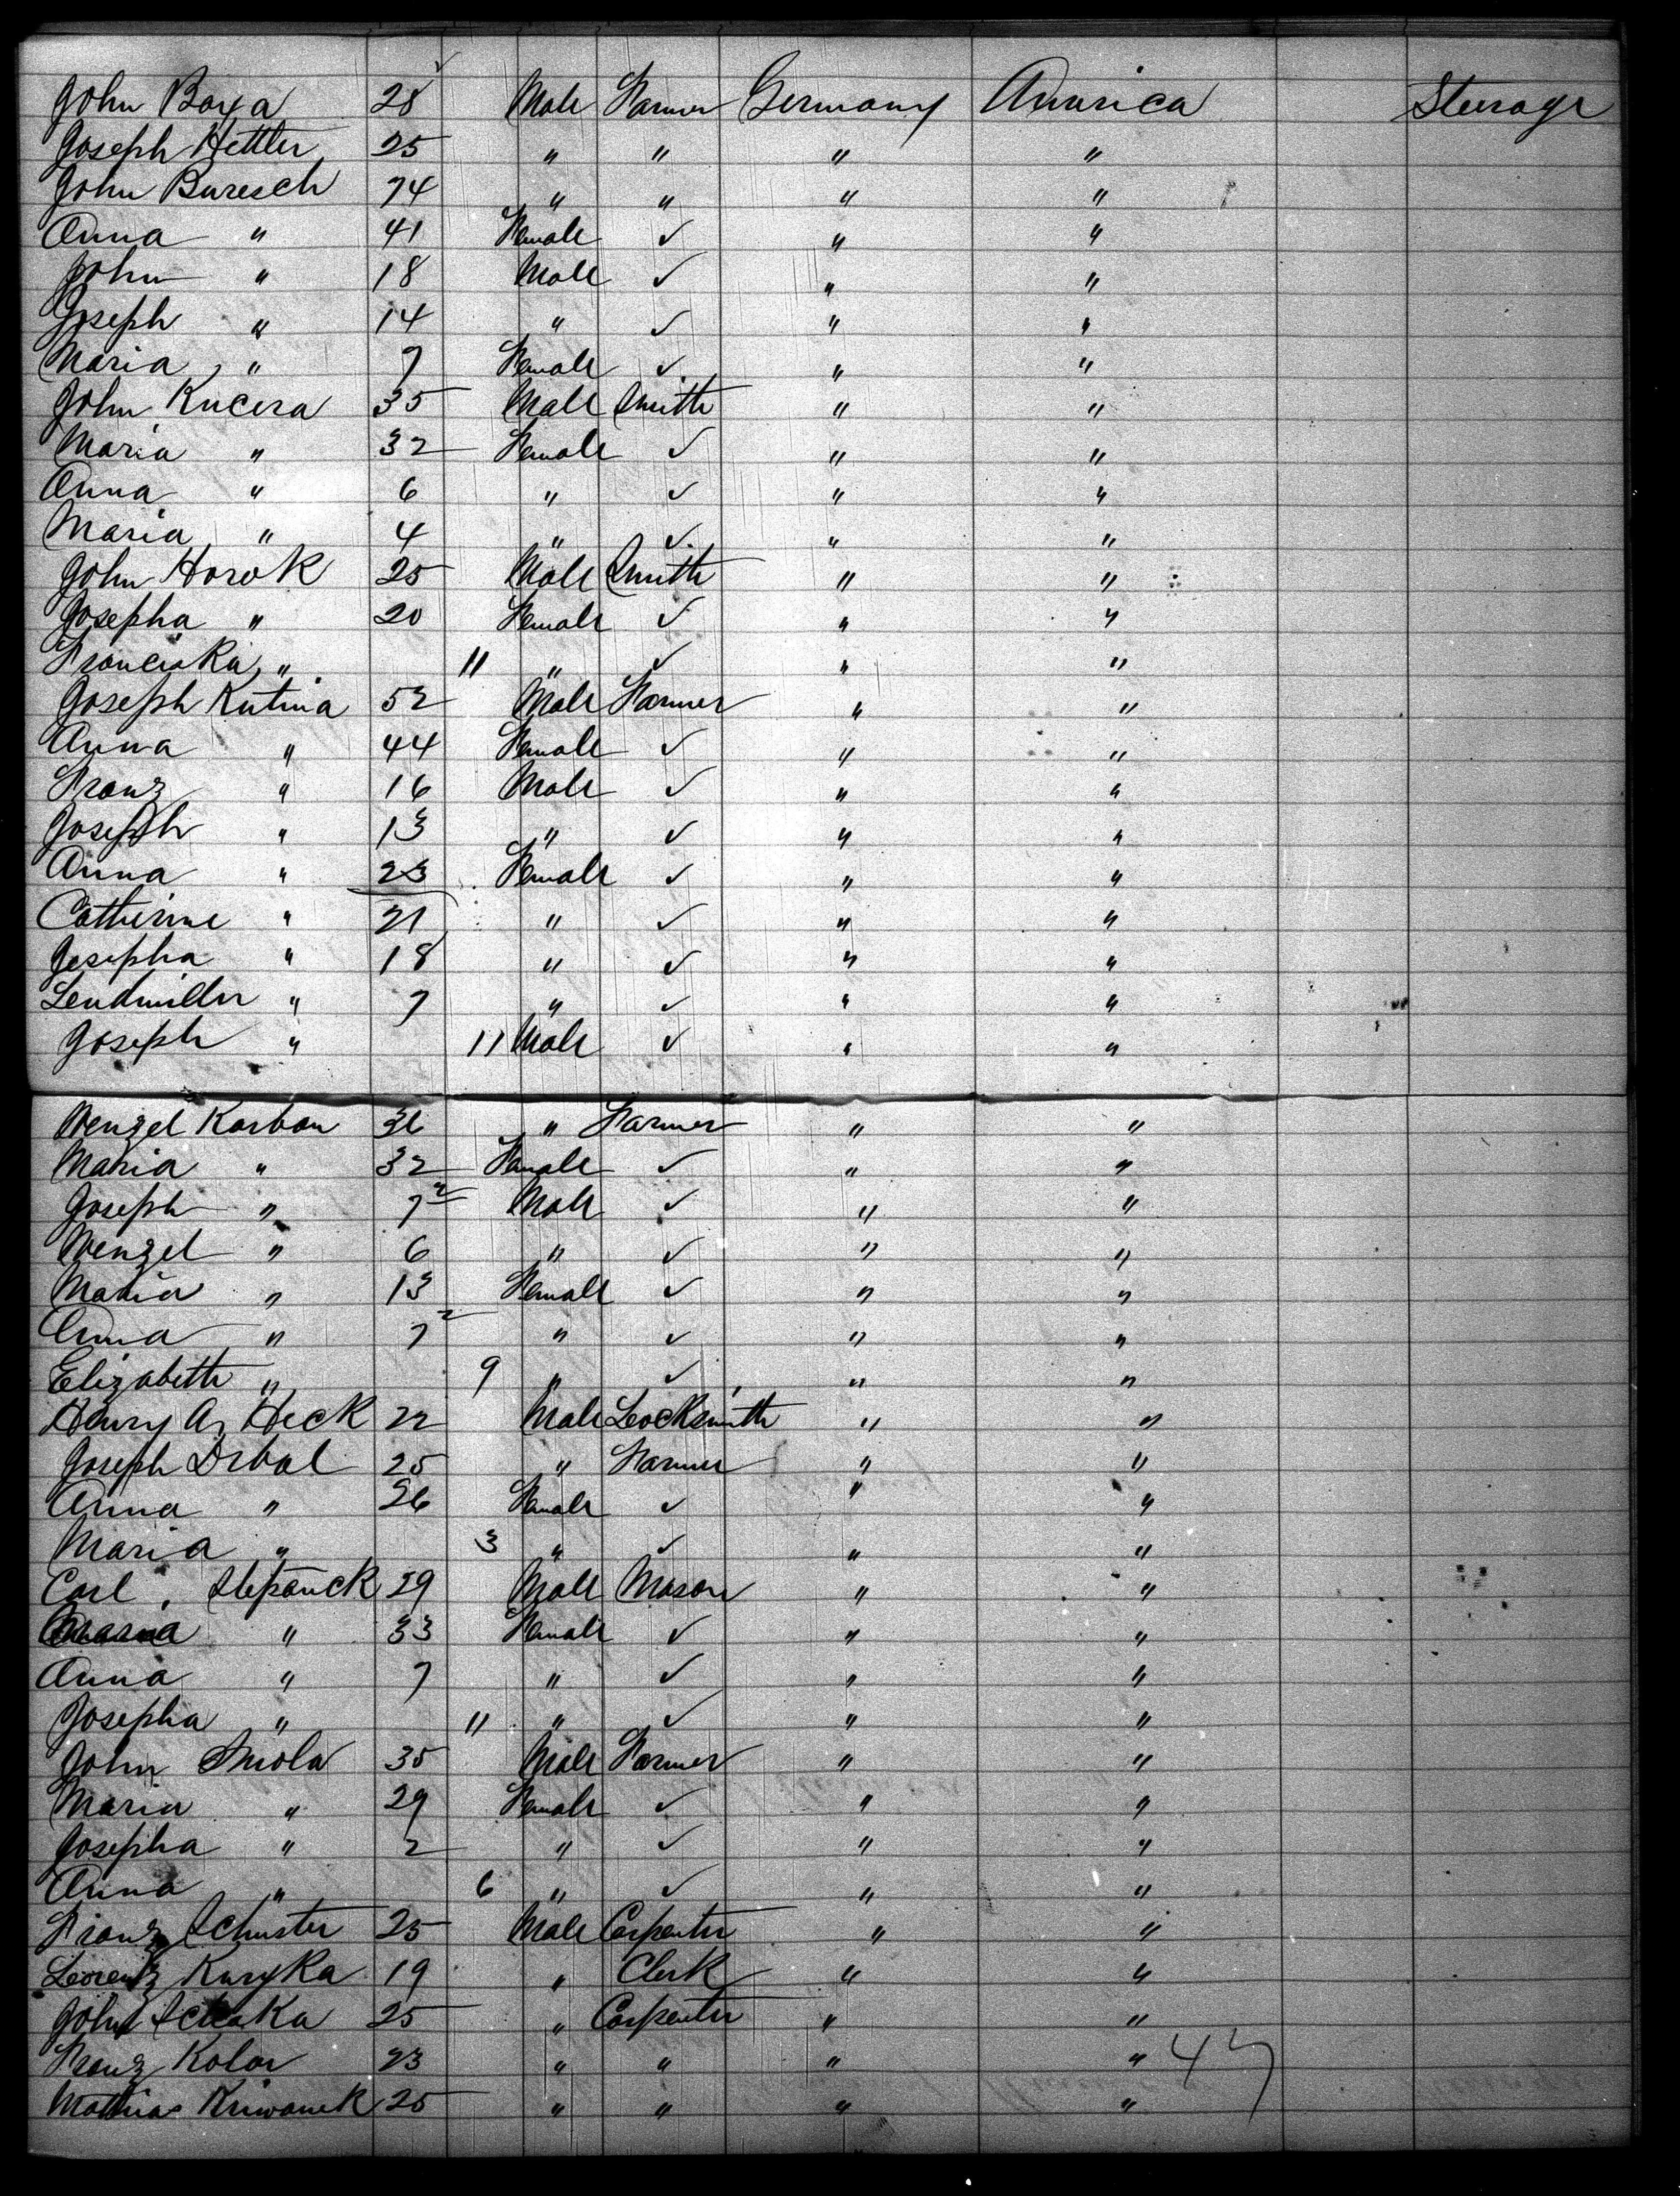 John Boxa 28 Male Farmer Germany America Steerage
Joseph Hettler 25 " " " "
John Buresch 74 " " " "
Anna " 41 Female ✓ " "
John " 18 Male ✓ " "
Joseph " 14 " ✓ " "
Maria " 7 Female ✓ " "
John Kucera 35 Male Smith " "
Maria " 32 Female ✓ " "
Anna " 6 " ✓ " "
Maria " 4 " ✓ " "
John Horok 25 Male Smith " "
Josepha " 20 Female ✓ " "
Franciska " 11 " ✓ " "
Joseph Kutina 52 Male Farmer " "
Anna " 44 Female ✓ " "
Franz " 16 Male ✓ " "
Joseph " 13 " ✓ " "
Anna " 23 Female ✓ " "
Catherine " 21 " ✓ " "
Josepha " 18 " ✓ " "
Leudmiller " 7 " ✓ " "
Joseph " 11 Male ✓ " "
Wenzel Karban 36 " Farmer " "
Maria " 32 Female ✓ " "
Joseph " 7 Male ✓ " "
Wenzel " 6 " ✓ " "
Maria " 13 Female ✓ " "
Anna " 7 " ✓ " "
Elizabeth " 9 " ✓ " "
Henry A. Heck 22 Male Locksmith " "
Joseph Drbal 25 " Farmer " "
Anna " 26 Female ✓ " "
Maria " 3 " ✓ " "
Carl Stepanck 29 Male Mason " "
" 33 Female ✓ " "
Anna " 7 " ✓ " "
Josepha " 11 " ✓ " "
John Smola 35 Male Farmer " "
Maria " 29 Female ✓ " "
Josepha " 2 " ✓ " "
Anna " 6 " ✓ " "
Franz Schuster 25 Male Carpenter " "
Lorentz Kuryka 19 " Clerk " "
John 25 " Carpenter " "
Franz Kolar 23 " " " " 47
Mathias Kriwanek 25 " " " "